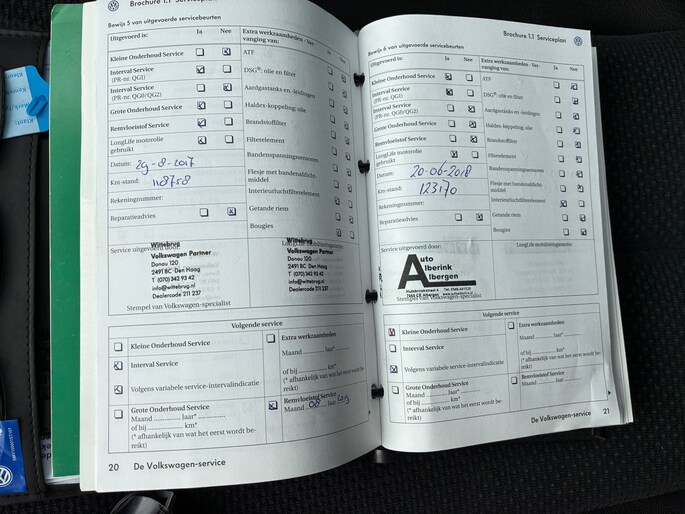 Brochure 1.1 Serviceplan
Bewijs 5 van uitgevoerde servicebeurten
Uitgevoerd is:
Ja
Nee
Kleine Onderhoud Service
Interval Service
(PR-nr. QG1)
Interval Service
(PR-nr. QG0/QG2)
Grote Onderhoud Service
Remvloeistof Service
LongLife motorolie
gebruikt
Datum: 29-8-2017
Km-stand: 118758
Rekeningnummer:
Reparatieadvies
Extra werkzaamheden - Ver-
vanging van:
Ja
Nee
ATF
DSG®: olie en filter
Aardgastanks en -leidingen
Haldex-koppeling: olie
Brandstoffilter
Filterelement
Bandenspanningssensoren
Flesje met bandenafdicht-
middel
Interieurluchtfilterelement
Getande riem
Bougies
Service uitgevoerd door:
Wittebrug
Volkswagen Partner
Donau 120
2491 BC Den Haag
T (070) 342 93 42
info@wittebrug.nl
Dealercode 211 237
Stempel van Volkswagen-specialist
Wittebrug
Volkswagen Partner
Donau 120
2491 BC Den Haag
T (070) 342 93 42
info@wittebrug.nl
Dealercode 211 237
Volgende service
Kleine Onderhoud Service
Interval Service
Volgens variabele service-intervalindicatie
Grote Onderhoud Service
Maand ........ jaar*
of bij ........ km*
(* afhankelijk van wat het eerst wordt be-
reikt)
Extra werkzaamheden
Maand ........ jaar*
of bij ........ km*
(* afhankelijk van wat het eerst wordt be-
reikt)
Remvloeistof Service
Maand 08 jaar 2019
20
De Volkswagen-service
Brochure 1.1 Serviceplan
Bewijs 6 van uitgevoerde servicebeurten
Uitgevoerd is:
Ja
Nee
Kleine Onderhoud Service
Interval Service
(PR-nr. QG1)
Interval Service
(PR-nr. QG0/QG2)
Grote Onderhoud Service
Remvloeistof Service
LongLife motorolie
gebruikt
Datum: 20-06-2018
Km-stand: 123170
Rekeningnummer:
Reparatieadvies
Extra werkzaamheden - Ver-
vanging van:
Ja
Nee
ATF
DSG®: olie en filter
Aardgastanks en -leidingen
Haldex-koppeling: olie
Brandstoffilter
Filterelement
Bandenspanningssensoren
Flesje met bandenafdicht-
middel
Interieurluchtfilterelement
Getande riem
Bougies
Service uitgevoerd door:
LongLife mobiliteitsgarantie
Auto
Alberink
Albergen
Stempel van Volkswagen-specialist
Volgende service
Kleine Onderhoud Service
Interval Service
Volgens variabele service-intervalindicatie
Grote Onderhoud Service
Maand ........ jaar*
of bij ........ km*
(* afhankelijk van wat het eerst wordt be-
reikt)
Extra werkzaamheden
Maand ........ jaar*
of bij ........ km*
(* afhankelijk van wat het eerst wordt be-
reikt)
Remvloeistof Service
Maand ........ jaar
De Volkswagen-service
21